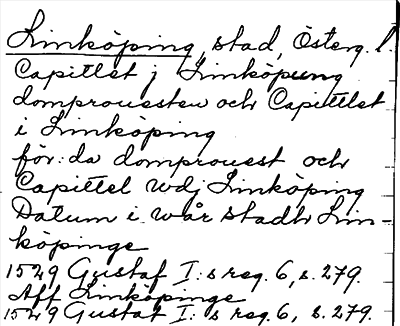 Linköping, stad, Österg. l.
Capitlet j Linköpung
domprouesten och Capittlet
i Linköping
för: da domprouest och
Capittel vdj Linköping
Datum i wår stadh Lin-
köpinge
1529 Gustaf I:s reg. 6, s. 279.
Aff Linköpinge
1529 Gustaf I:s reg. 6, s. 279.